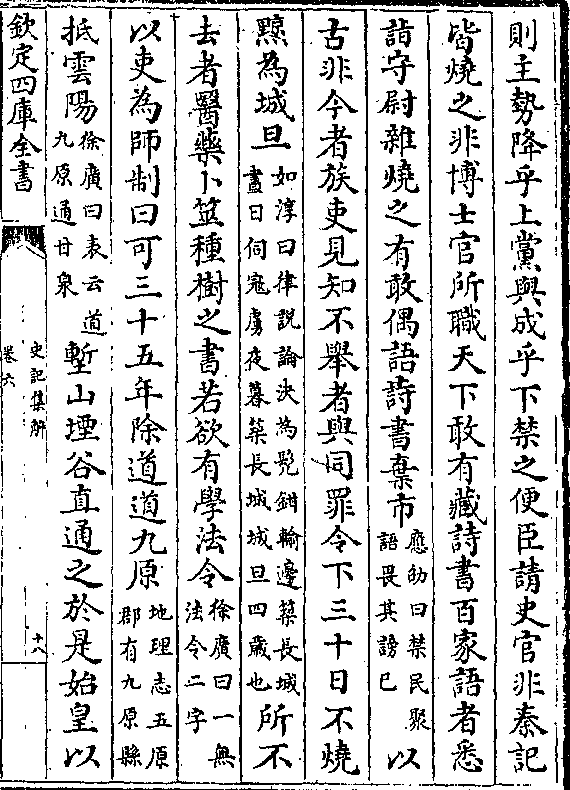 則主勢降乎上黨與成乎下禁之便臣請史官非秦記
皆燒之非博士官所職天下敢有藏詩書百家語者悉
詣守尉雜燒之有敢偶語詩書棄市
應劭曰禁民聚
語畏其謗已
以
古非今者族吏見知不舉者與同罪令下三十日不燒
黥為城旦
如淳曰律說論決為髡鉗輸邊築長城
晝日伺寇虜夜暮築長城城旦四歲也
所不
去者醫藥卜筮種樹之書若欲有學法令
徐廣曰一無
法令二字
以吏為師制曰可三十五年除道道九原
地理志五原
郡有九原縣
抵雲陽
徐廣曰表云道
九原通甘泉
塹山堙谷直通之於是始皇以
欽定四庫全書
史記集解
卷六
十八